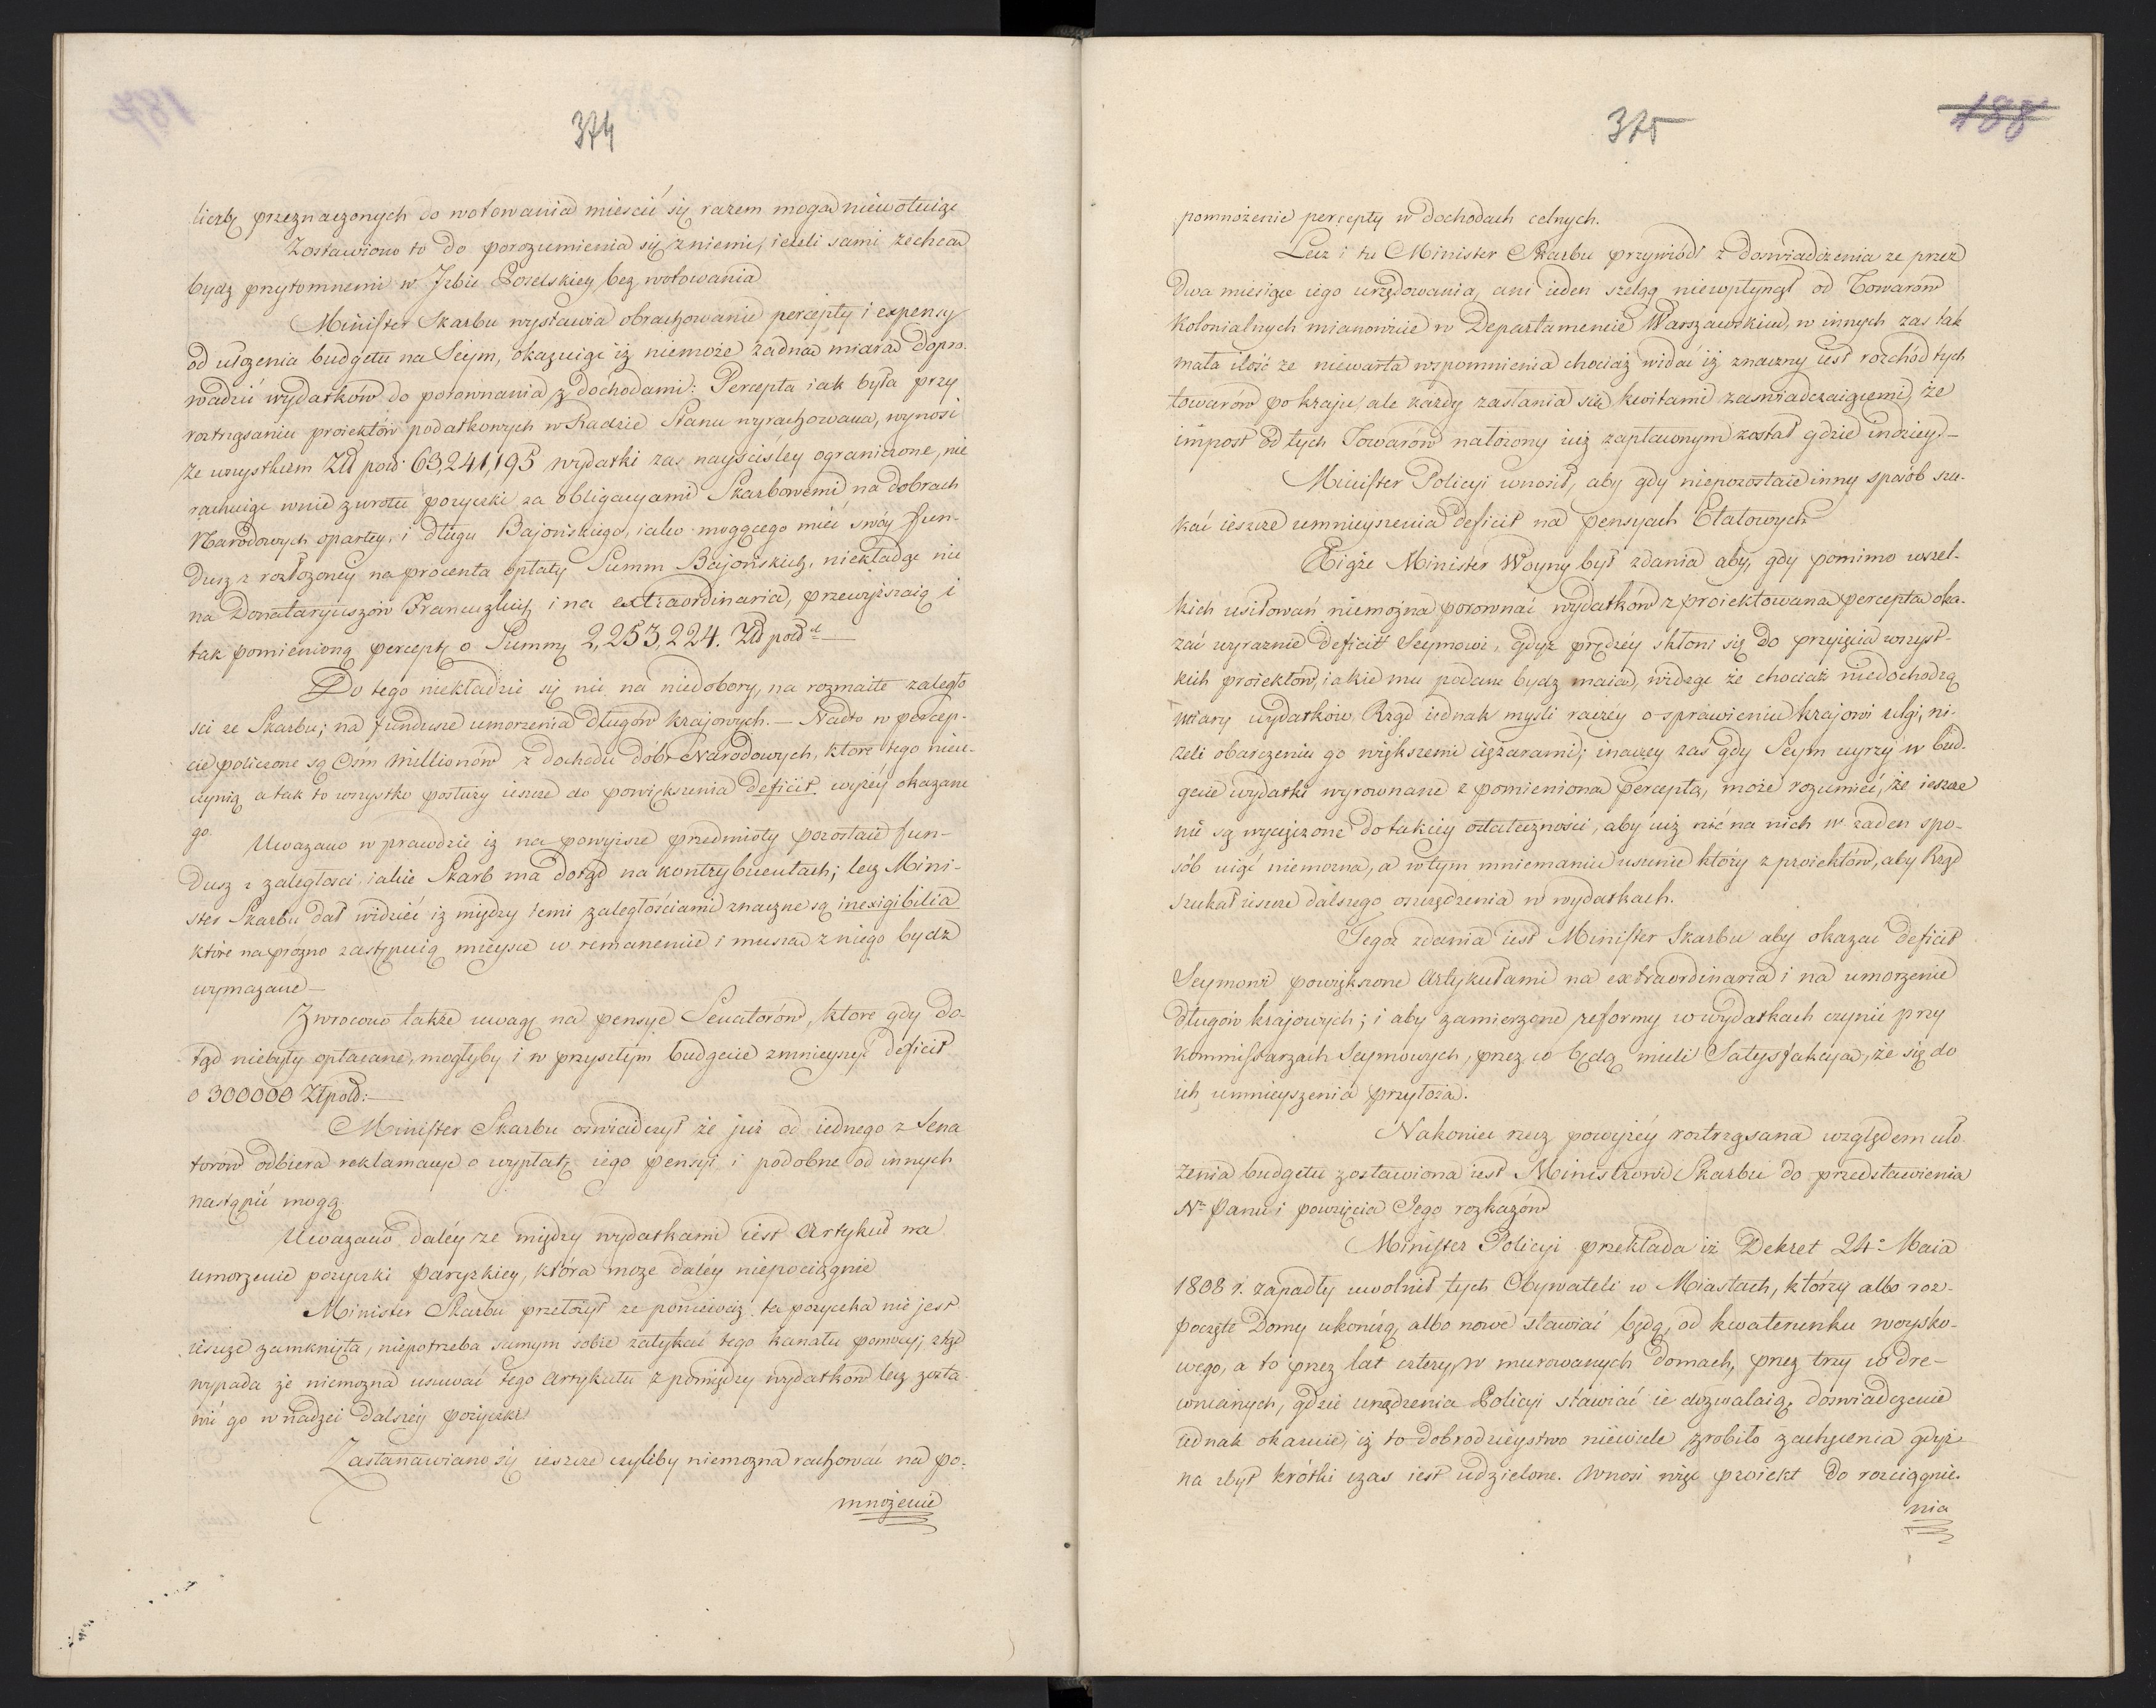 374
liczbę przeznaczonych do wotowania mieścić się razem mogą niewotuiąc
Zostawiono to do porozumienia się z niemi, ieżeli sami zechcą
bydź przytomnemi w Izbie Poselskiey bez wotowania
Minister Skarbu wystawia obrachowanie percepty i expensy
od ułożenia budgetu na Seym, okazuiąc iż niemoże żadną miarą dopro-
wadzić wydatków do porównania z dochodami: Percepta iak była przy
roztrząsaniu proiektów podatkowych w Radzie Stanu wyrachowana, wynosi
ze wszystkiem Złł pols: 63,241,195 wydatki zas nayściśléy ograniczone, nie
rachuiąc wnie zwrotu pożyczki za obligacyami Skarbowemi na dobrach
Narodowych opartéy, i długu Bajońskiego, iako mogącego mieć swóy fun-
dusz z rozłożoney na procenta opłaty Summ Bajońskich, niekładąc nic
na Donataryuszów Francuzkich i na extraordinaria, przewyższaią i
tak pomienioną perceptę o Summę 2,253,224. Złł pols
Do tego niekładzie się nic na niedobory, na rozmaite zaległo
ści ze Skarbu; na fundusze umorzenia długów krajowych. — Nadto w percep-
cie policzone są Osm Millionów z dochodu dóbr Narodowych, które tego nieu-
czynią a tak to wszystko posłuży ieszcze do powiększenia deficit wyżéy okazane
go
Uważano w prawdzie iż na powyższe przedmioty pozostaie fun-
dusz z zaległości iakie Skarb ma dotąd na kontrybuentach; lecz Mini-
ster Skarbu dał widzieć iż między temi zaległościami znaczne są inexigibilia
które na próżno zastępuią mieysce w remanencie i muszą z niego bydź
wymazane —
Zwrócono także uwagę na pensye Senatorów, które gdy do-
tąd niebyły opłacane, mogłyby i w przyszłym budgecie zmnieyszyć deficit
o 300000 Złpols:
Minister Skarbu oświadczył że już od iednego z Sena
torów odbiera reklamacye o wypłatę iego pensyi i podobne od innych
nastąpić mogą
Uważano daléy że między wydatkami iest Artykuł na
umorzenie pożyczki paryzkiey, która może daléy niepociągnie
Minister Skarbu przełożył że ponieważ ta pożyczka nie jest
ieszcze zamknięta, niepotrzeba samym sobie zatykać tego kanału pomocy; ztąd
wypada że niemożna usuwać tego Artykułu z pomiędzy wydatków lecz zosta-
wić go w nadzei dalszéy pożyczki
Zastanawiano się ieszcze czyliby niemożna rachować na po-
mnożenie
375
188
pomnożenie percepty w dochodach celnych.
Lecz i tu Minister Skarbu przywiódł z doświadczenia że przez
dwa miesiące iego urzędowania, ani ieden szeląg niewpłynął od Towarów
kolonialnych mianowicie w Departamencie Warszawskim, w innych zas tak
mała ilość że niewarta wspomnienia chociaż widać iż znaczny iest rozchód tych
towarów po kraju, ale każdy zasłania się kwitami zaświadczaiącemi, że
impost od tych Towarów nałożony iuż zapłaconym został gdzie indziey —
Minister Policyi wnosił, aby gdy niepozostaie inny sposób szu-
kać ieszcze umnieyszenia deficit na pensyach Etatowych
Xiąże Minister Woyny był zdania aby, gdy pomimo wszel-
kich usiłowań niemożna porównać wydatków z proiektowaną perceptą oka-
zać wyraźnie deficit Seymowi, gdyż prędzéy skłoni się do przyięcia wszyst-
kich proiektów, iakie mu podane bydź maią, widząc że chociaż niedochodzą
miary wydatków Rząd iednak myśli raczéy o sprawieniu krajowi ulgi, ni-
żeli obarczeniu go większemi ciężarami; inaczey zas gdy Seym uyrzy w bud-
gecie wydatki wyrównane z pomienioną perceptą, może rozumieć, że ieszcze
nie są wyciężone do takiey ostateczności, aby iuż nic na nich w żaden spo-
sób uiąć niemożna, a w tym mniemaniu usunie który z proiektów, aby Rząd
szukał ieszcze dalszego oszczędzenia w wydatkach.
Tegoż zdania iest Minister Skarbu aby okazać deficit
Seymowi powiększone Artykułami na extraordinaria i na umorzenie
długów krajowych; i aby zamierzone reformy w wydatkach czynić przy
kommissarzach Seymowych, przez co będą mieli Satysfakcyą, że się do
ich umnieyszenia przyłożą.
Nakoniec rzecz powyżéy roztrząsana względem uło-
żenia budgetu zostawiona iest Ministrowi Skarbu do przedstawienia
Nu Panu i powzięcia Jego rozkazów
Minister Policyi przekłada iż Dekret 24o Maia
1808 r. zapadły uwolnił tych Obywateli w Miastach, którzy albo roz-
poczęte Domy ukończą, albo nowe stawiać będą, od kwaterunku woysko-
wego, a to przez lat cztery, w murowanych domach, przez trzy w dre-
wnianych, gdzie urządzenia Policyi stawiać ie dozwalaią, doświadczenie
iednak okazuie, iż to dobrodzieystwo niewiele zrobiło zachęcenia gdyż
na zbyt krótki czas iest udzielone. Wnosi więc proiekt do rozciągnie-
nia